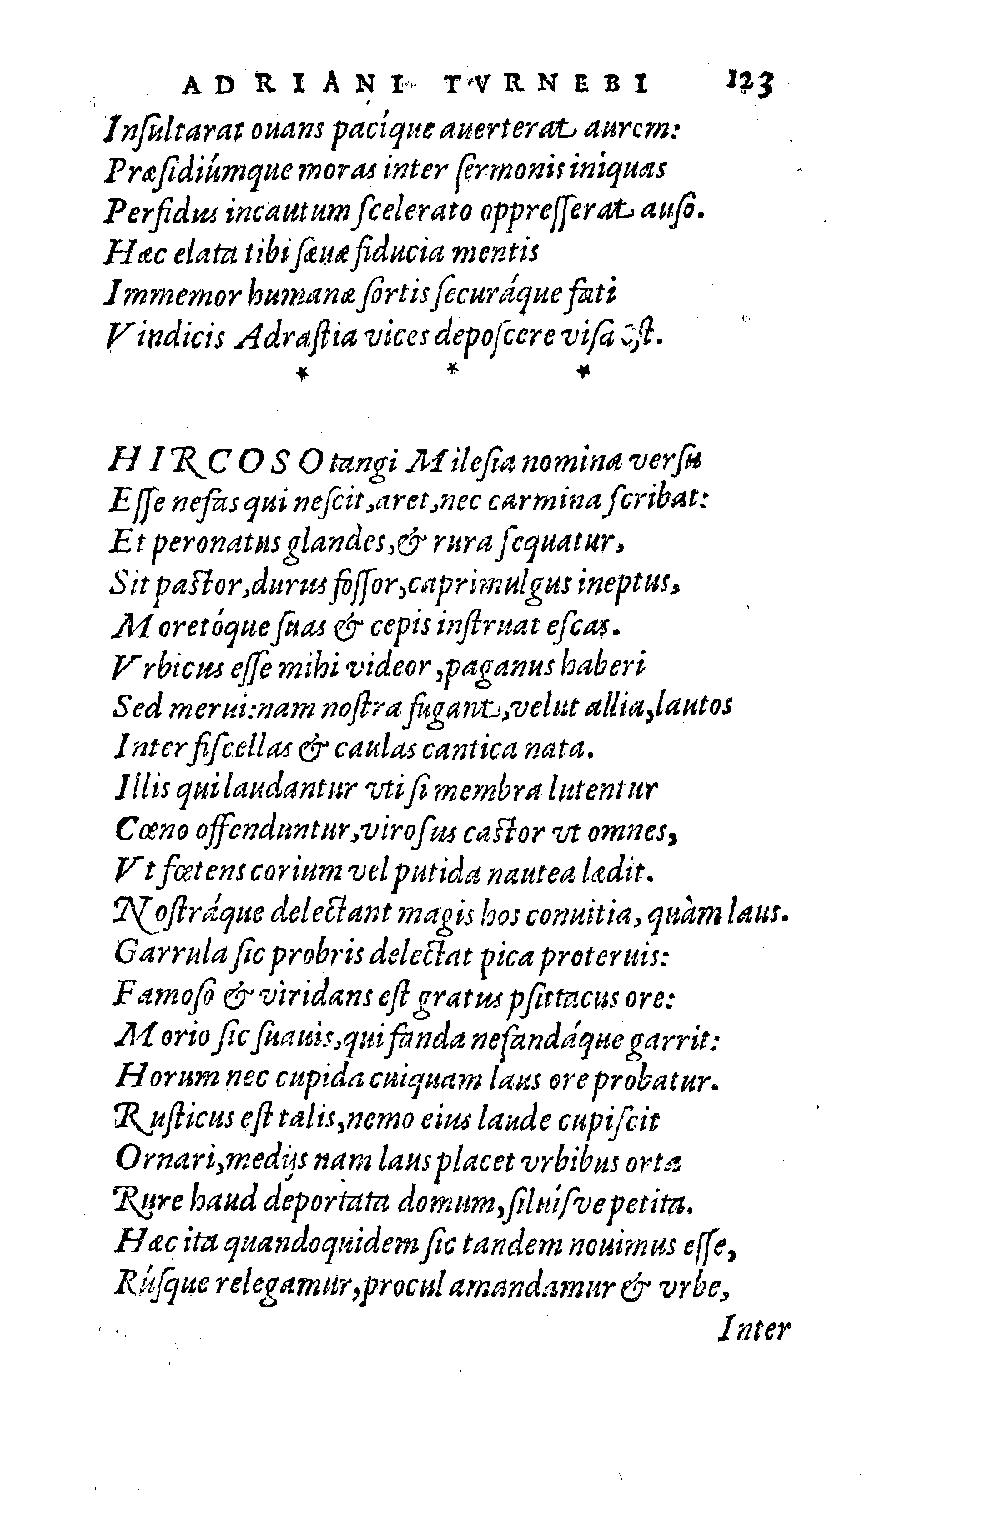 ADRIANI TVRNEBI 123
Inſultarat ouans pacíque auerterat aurem:
Præſidiúmque moras inter ſermonis iniquas
Perfidus incautum ſcelerato oppreſſerat auſo.
Hæc elata tibi ſæuæ fiducia mentis
Immemor humanæ ſortis ſecuráque fati
Vindicis Adraſtia vices depoſcere viſa eſt.
* * *
HIRCOSO tangi Mileſia nomina verſu
Eſſe nefas qui neſcit, aret, nec carmina ſcribat:
Et peronatus glandes, & rura ſequatur,
Sit paſtor, durus foſſor, caprimulgus ineptus,
Moretóque ſuas & cepis inſtruat eſcas.
Vrbicus eſſe mihi videor, paganus haberi
Sed merui: nam noſtra fugant, velut allia, lautos
Inter fiſcellas & caulas cantica nata.
Illis qui laudantur vti ſi membra lutentur
Cœno offenduntur, viroſus caſtor vt omnes,
Vt fœtens corium vel putida nautea lædit.
Noſtráque delectant magis hos conuitia, quàm laus.
Garrula ſic probris delectat pica proteruis:
Famoſo & viridans eſt gratus pſittacus ore:
Morio ſic ſuauis, qui fanda nefandáque garrit:
Horum nec cupida cuiquam laus ore probatur.
Ruſticus eſt talis, nemo eius laude cupiſcit
Ornari, medijs nam laus placet vrbibus orta
Rure haud deportata domum, ſiluíſve petita.
Hæc ita quandoquidem ſic tandem nouimus eſſe,
Rúſque relegamur, procul amandamur & vrbe,
Inter